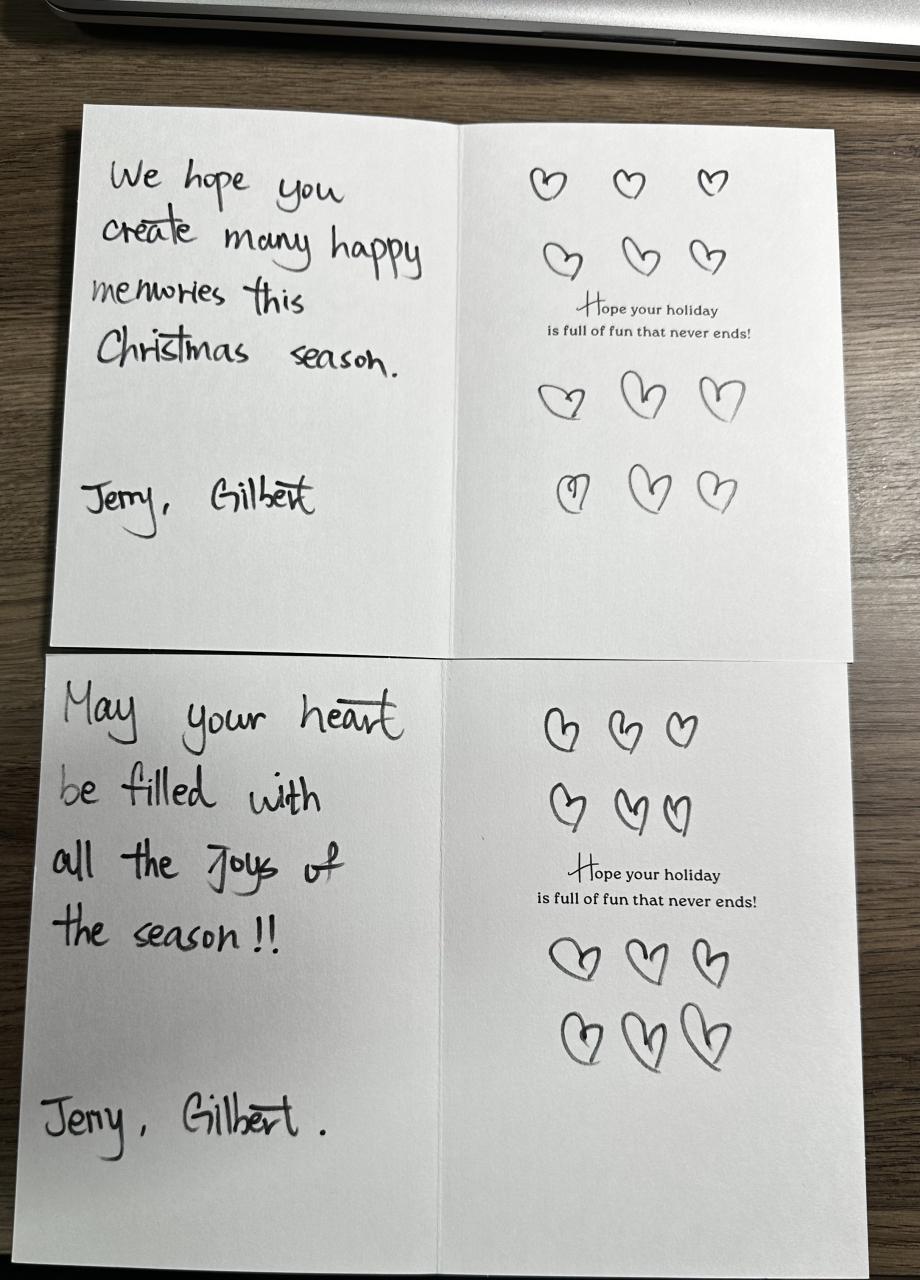 We hope you
create many happy
memories this
Christmas season.
Jerry, Gilbert
Hope your holiday
is full of fun that never ends!
May your heart
be filled with
all the Joys of
the season!!
Jerry, Gilbert.
Hope your holiday
is full of fun that never ends!